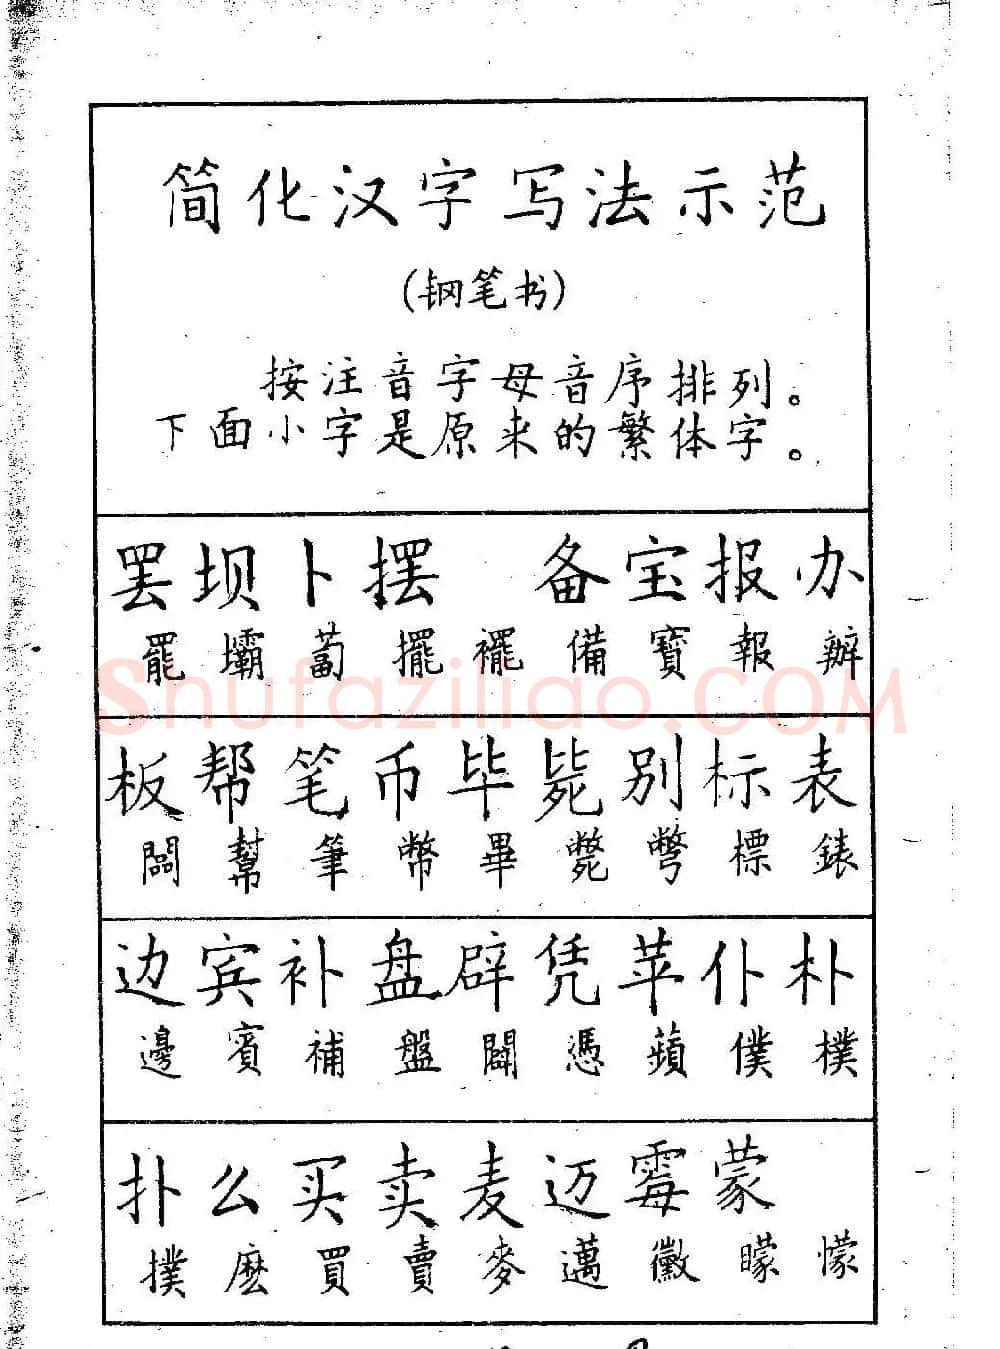 简化汉字写法示范
(钢笔书)
按注音字母音序排列。
下面小字是原来的繁体字。
罢坝卜摆 备宝报办
罷壩蔔擺襬備寶報辦
板帮笔币毕毙别标表
闆幫筆幣畢斃彆標錶
边宾补盘辟凭苹仆朴
邊賓補盤闢憑蘋僕樸
扑么买卖麦迈霉蒙
撲麽買賣麥邁黴矇懞
Shufaziliao.COM